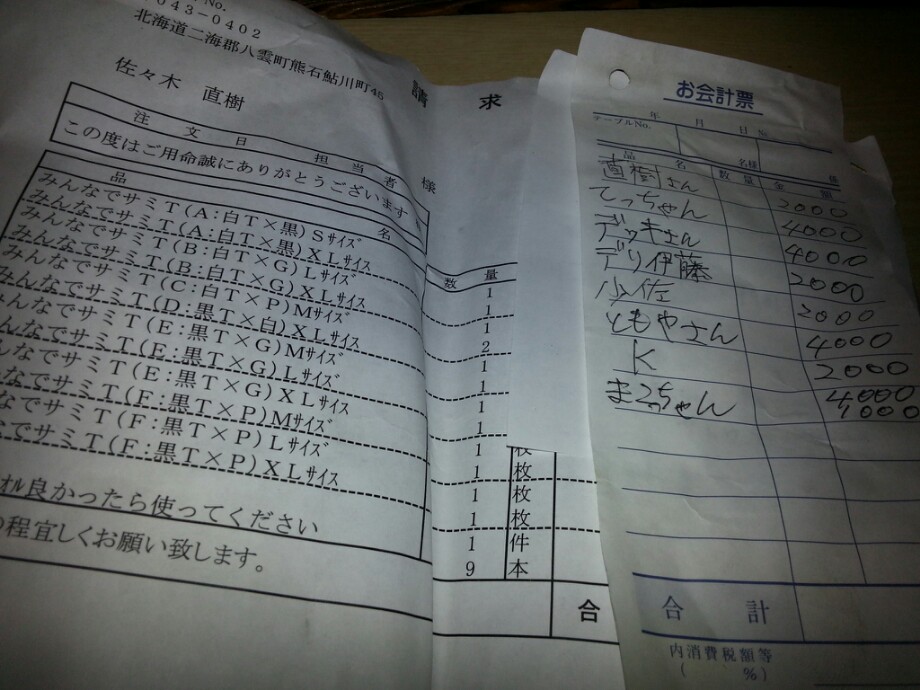 No.
043-0402
北海道二海郡八雲町熊石鮎川町45
請 求
佐々木 直樹
様
注 文 日 担 当 者
この度はご用命誠にありがとうございます
品 名
数 量
みんなでサミT(A:白T×黒)Sサイズ
みんなでサミT(A:白T×黒)XLサイズ
みんなでサミT(B:白T×G)Lサイズ
みんなでサミT(B:白T×G)XLサイズ
みんなでサミT(C:白T×P)Mサイズ
みんなでサミT(D:黒T×白)XLサイズ
みんなでサミT(E:黒T×G)Mサイズ
んなでサミT(E:黒T×G)Lサイズ
んなでサミT(E:黒T×G)XLサイズ
なでサミT(F:黒T×P)Mサイズ
なでサミT(F:黒T×P)Lサイズ
でサミT(F:黒T×P)XLサイズ
ォﾙ良かったら使ってください
の程宜しくお願い致します。
1
1
1
2
1
1
1
1
1
1 枚
1 枚
1 枚
1 件
9 本
合
お会計票
テーブルNo.
年 月 日 No.
名様 係
品 名 数 量 金 額
直樹さん 2000
てっちゃん 4000
デッキさん 4000
デリ伊藤 2000
少佐 2000
ともやさん 4000
K 2000
まこちゃん 4000
合 計
内消費税額等
( %)